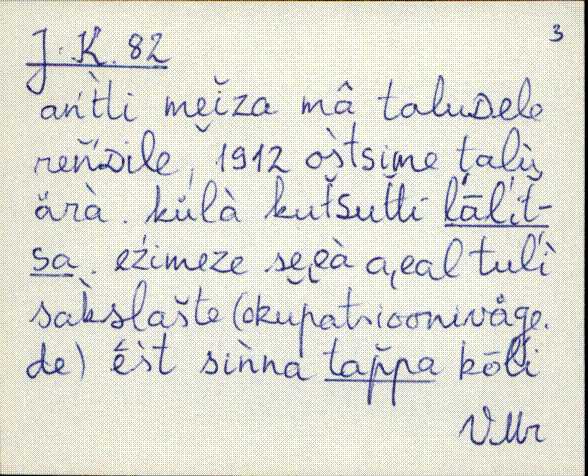 3
J. K. 82
an̆t̀li meĭza mâ taluᴅele
reň́ᴅile, 1912 òštsime talù
ärà. külà kut̆šut̆ti lāĺit̆-
sa. eźimeze se̮eà a̮eal tulì
sàkslašte (okupatsioonivåge.
de) èśt sin̆na tap̆pa kōĺi
VMr